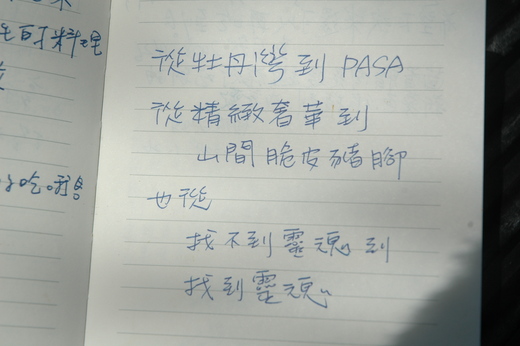 生可料理
好吃哦!
從牡丹灣到 PASA
從精緻奢華到
山間脆皮豬腳
也從
找不到靈魂到
找到靈魂~